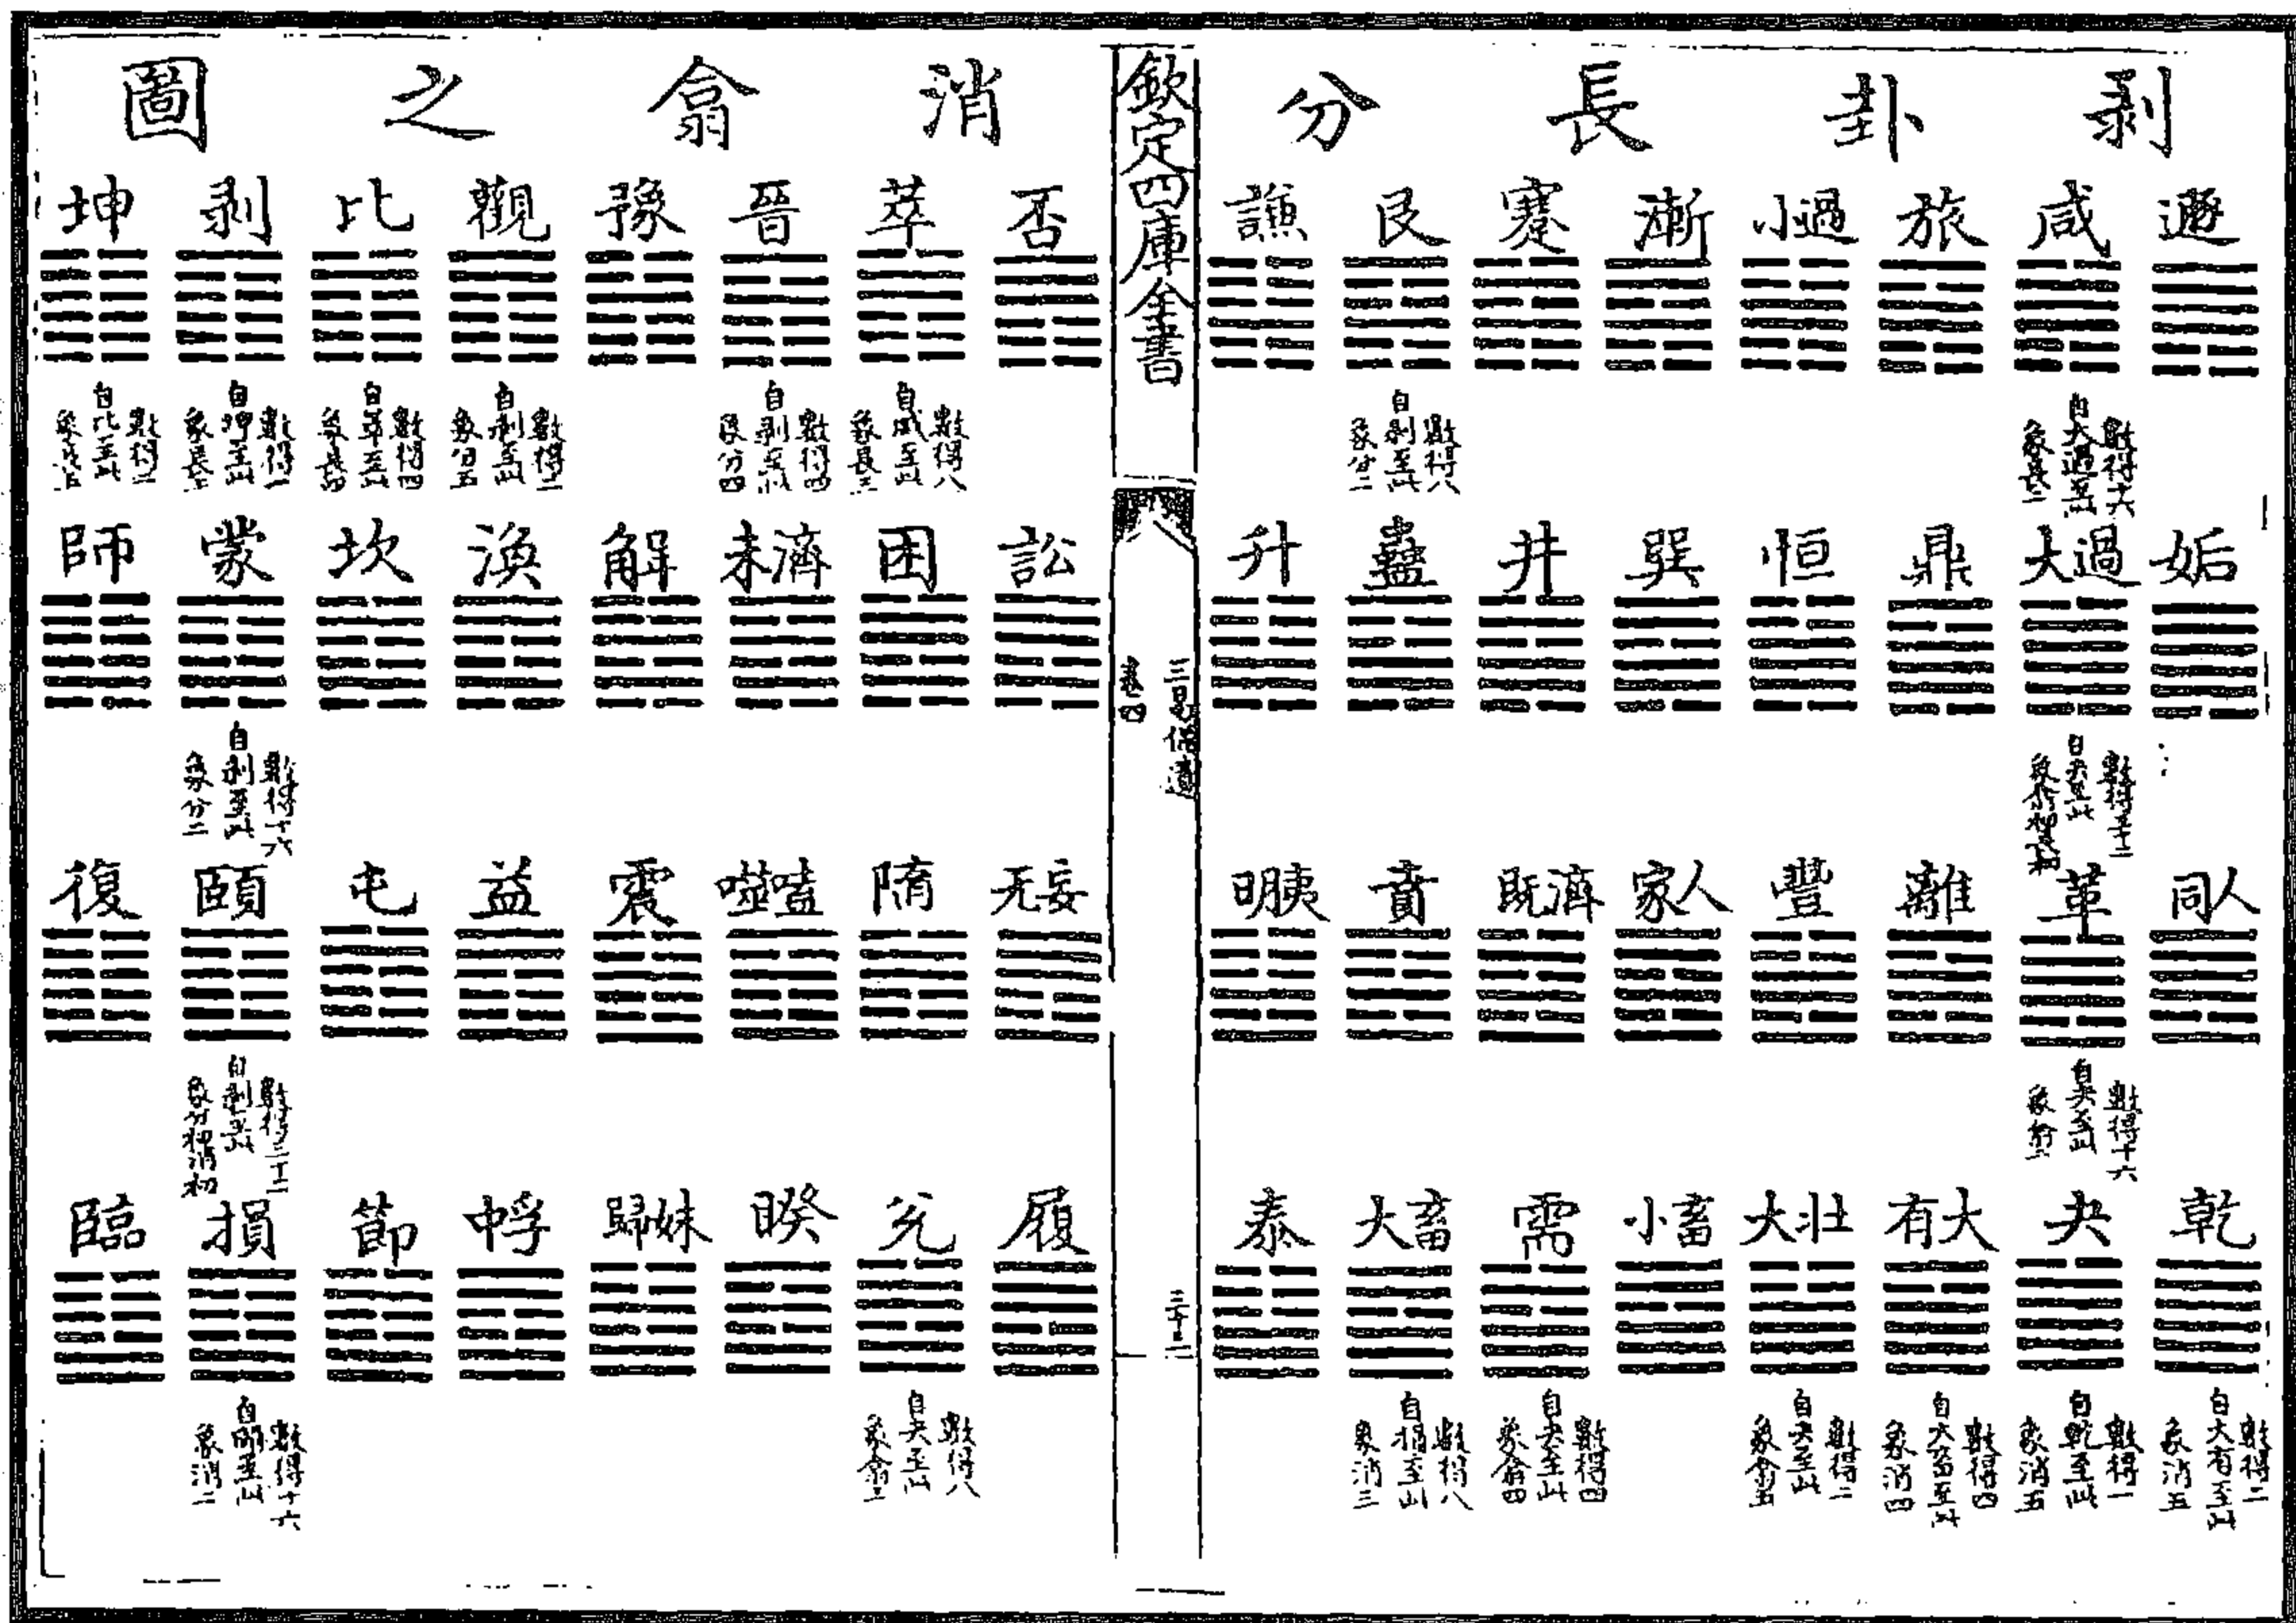 剥卦長分
遯 咸 旅 小過 漸 蹇 艮 謙
數得十六
自大過至此
象長二
數得八
自剥至此
姤 大過 鼎 恒 巽 井 蠱 升
數得三十二
自夬至此
同人 革 離 豐 家人 既濟 賁 明夷
數得十六
自夬至此
象翕二
乾 夬 大有 大壯 小畜 需 大畜 泰
數得二
自大有至此
象消五
數得一
自乾至此
象消五
數得四
自大畜至此
象消四
數得二
自夬至此
象翕五
數得四
自夬至此
象翕四
數得八
自損至此
象消三
欽定四庫全書
三易備遺
卷四
消翕之圖
否 萃 晉 豫 觀 比 剥 坤
數得八
自咸至此
象長三
數得四
自剥至此
象分四
數得二
自剥至此
象分五
數得四
自萃至此
象長四
數得一
自坤至此
象長
數得二
自比至此
象長五
訟 困 未濟 解 渙 坎 蒙 師
數得十六
自剥至此
象分二
无妄 隋 噬嗑 震 益 屯 頤 復
數得三十二
自剥至此
象分初消初
履 兌 睽 歸妹 中孚 節 損 臨
數得八
自夬至此
象翕三
數得十六
自頤至此
象消二